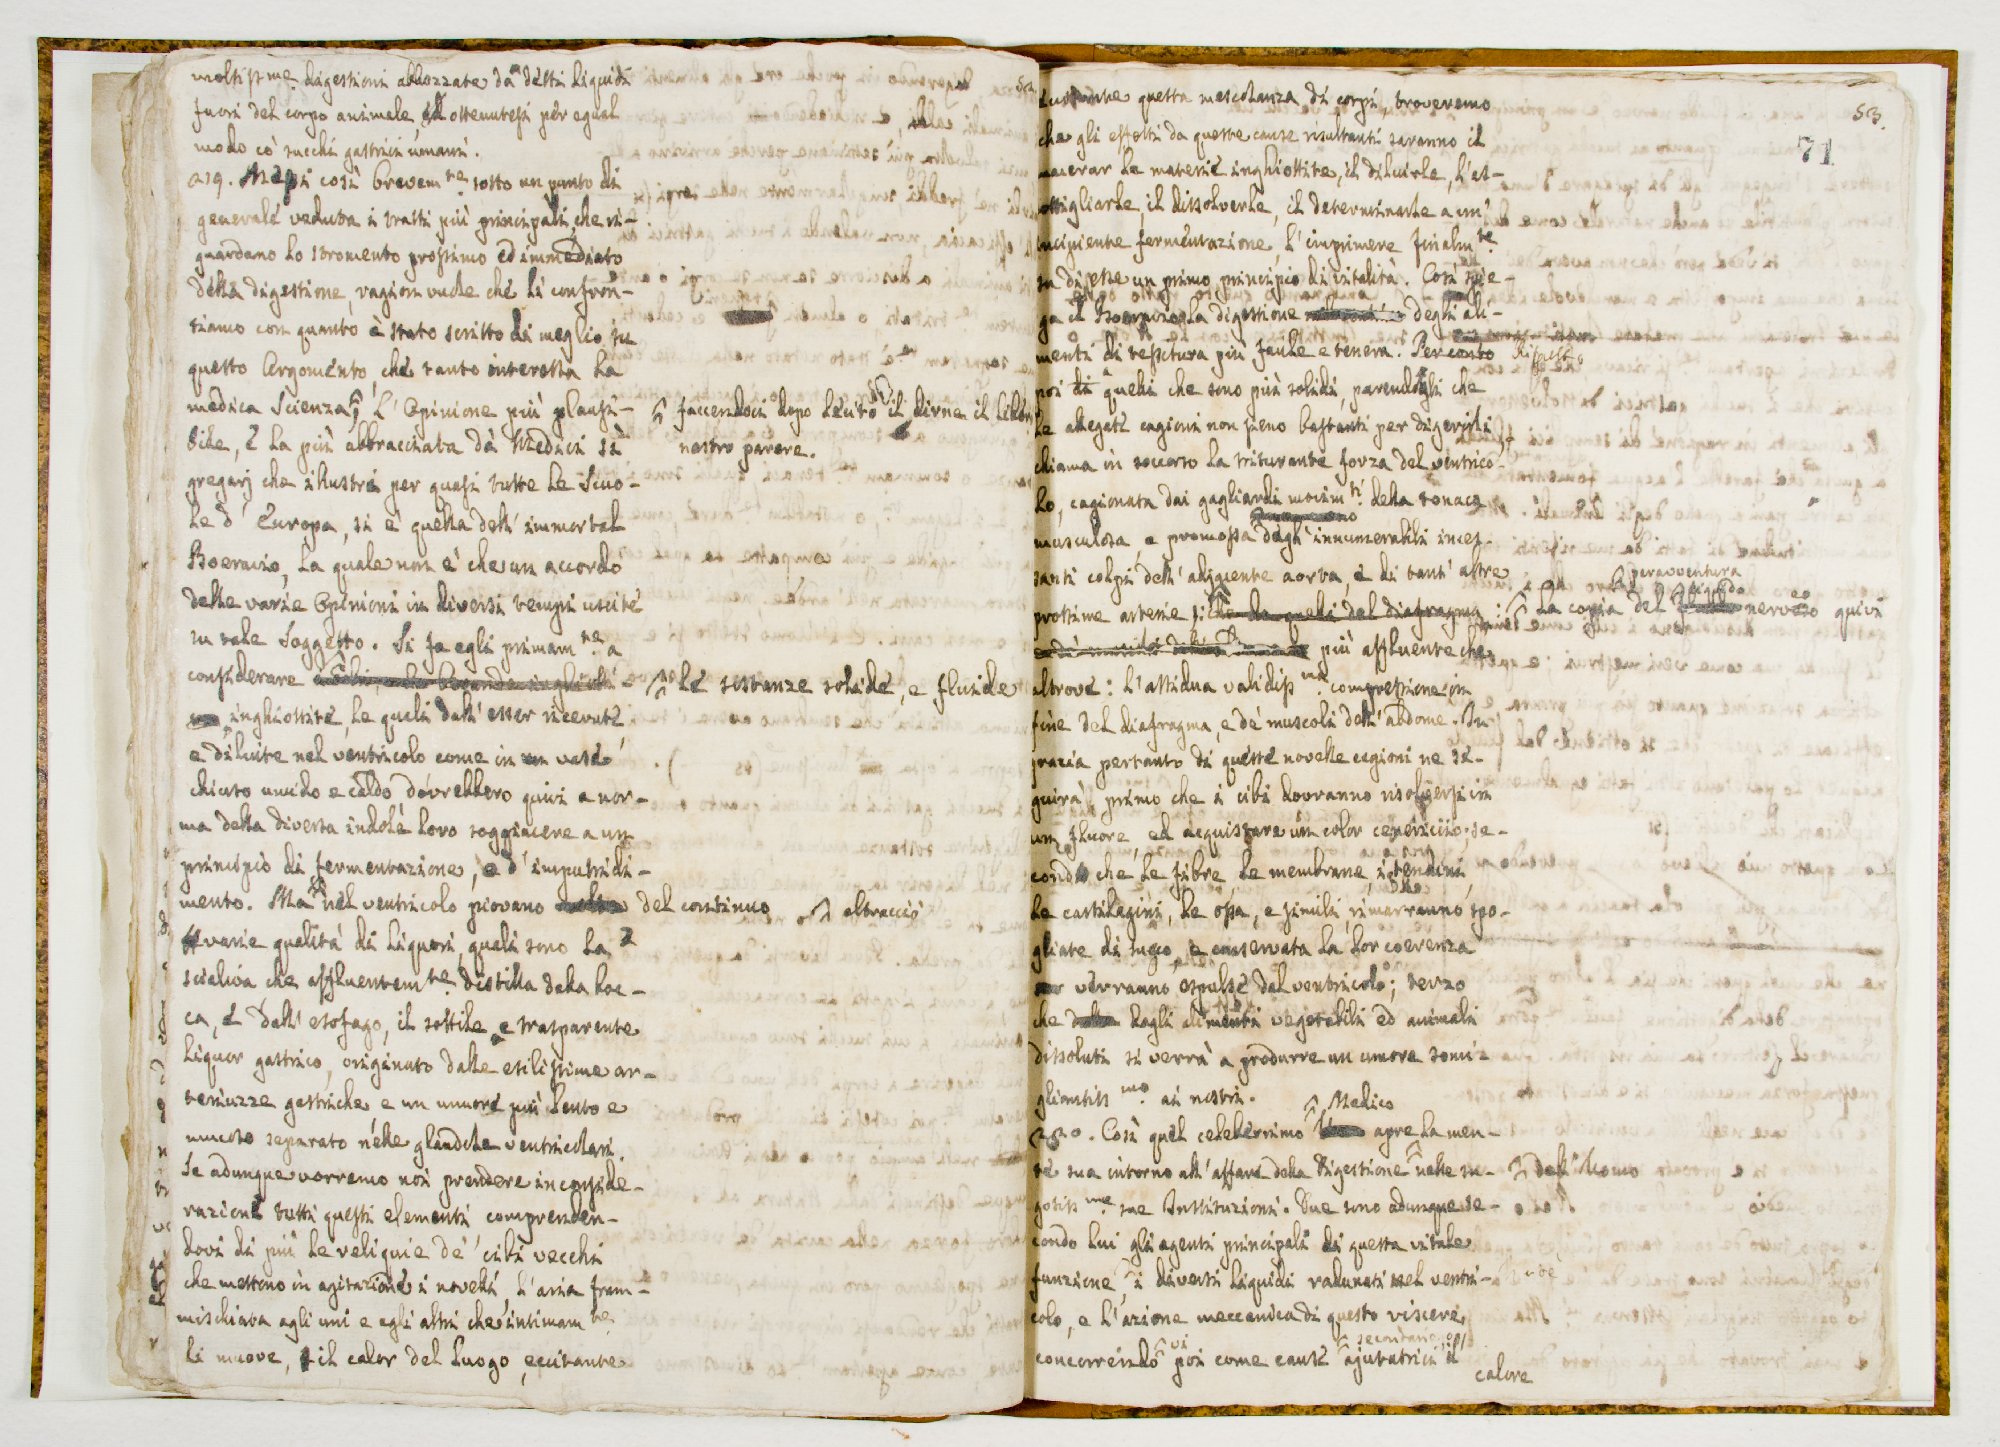 moltiss.me digestioni abbozzate da detti liquidi
fuori del corpo animale, ed ottenutesi per egual
modo co' succhi gastrici umani.
219. Messi così brevem.te sotto un punto di
generale veduta i tratti più principali, che ri-
guardano lo stromento prossimo ed immediato
della digestione, ragion vuole che li confron-
tiamo con quanto è stato scritto di meglio su
questo Argomento, che tanto interessa la
medica Scienza, L'Opinione più plausi-
facendoci dopo lecito il dirne il libero
nostro parere.
bile, e la più abbracciata da Medici sì
gregarj che illustri per quasi tutte le Scuo-
le d'Europa, si è quella dell'immortal
Boeravio, la quale non è che un accordo
delle varie Opinioni in diversi tempi uscite
su tale Soggetto. Si fa egli primam.te a
considerare
le sostanze solide, e fluide
inghiottite, le quali dall'esser ricevute,
e diluite nel ventricolo come in un vaso
chiuso umido e caldo dovrebbero quivi a nor-
ma della diversa indole loro soggiacere a un
principio di fermentazione, e d'imputridi-
mento. Ma nel ventricolo piovano del continuo altracciò
varie qualità di liquori, quali sono la
scialiva che affluentem.te distilla dalla boc-
ca, e dall'esofago, il sottile e trasparente
liquor gastrico, originato dalle esilissime ar-
teriuzze gastriche, e un umore più lento e
mucoso separato nelle glandole ventricolari.
Se adunque vorremo noi prendere in conside-
razione tutti questi elementi comprenden-
dovi di più le reliquie de' cibi vecchi
che mettono in agitazione i novelli, l'aria fram-
mischiata agli uni e agli altri che intimam.te
li muove, e il calor del luogo, eccitante
53.
71
questa mescolanza di corpi, troveremo
che gli effetti da queste cause risultanti saranno il
macerar le materie inghiottite, il diluirle, l'as-
sottigliarle, il dissolverle, il determinarle a un'
incipiente fermentazione, l'imprimere finalm.te
in esse un primo principio di vitalità. Così spie-
ga il Boeravio la digestione degli ali-
menti di tessitura più facile e tenera. Per conto
rispetto
poi di quelli che sono più solidi, parendogli che
le allegate cagioni non sieno bastanti per digerirli,
chiama in soccorso la triturante forza del ventrico-
lo, cagionata dai gagliardi movim.ti della tonaca
musculosa, e promossa dagl'innumerabili inces-
santi colpi dell'adjacente aorta, e di tant'altre
prossime arterie: La copia del liquido nerveo quivi
peravventura
più affluente che
altrove: l'assidua validiss.ma compressione in
fine del diafragma, e de' muscoli dell'abdome. In
grazia pertanto di queste novelle cagioni ne se-
guirà, primo che i cibi dovranno risolversi in
un fluore, ed acquistare un color cenericcio; se-
condo che le fibre, le membrane, i tendini,
le cartilagini, le ossa, e simili rimarranno spo-
gliate di sugo, e conservata la lor coerenza
verranno espulse dal ventricolo; terzo
che dagli alimenti vegetabili ed animali
dissoluti si verrà a produrre un umore somi-
gliantiss.mo ai nostri.
220. Così quel celeberrimo Medico apre la men-
te sua intorno all'affare della digestione dell'Uomo nelle su-
gosiss.me sue Instituzioni. Due sono adunque se-
condo lui gli agenti principali di questa vitale
funzione, i diversi liquidi radunati nel ventri-
colo, e l'azione meccanica di questo viscere,
concorrendovi poi come cause secondarie, ed ajutatrici il
calore